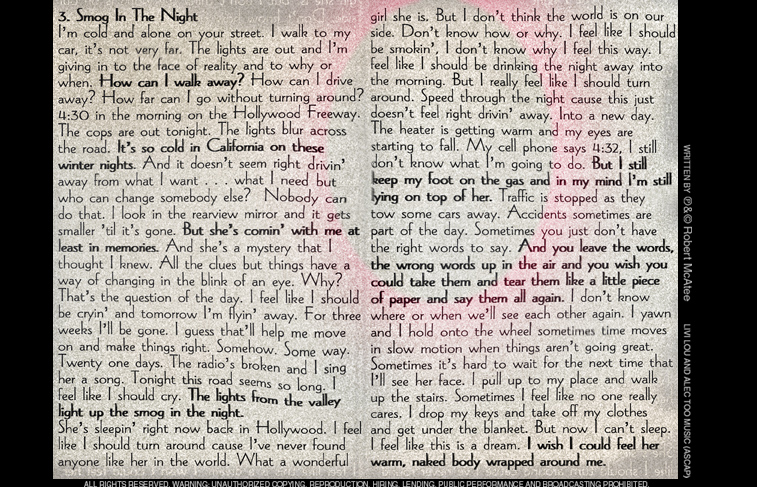 3. Smog In The Night
I'm cold and alone on your street. I walk to my
car, it's not very far. The lights are out and I'm
giving in to the face of reality and to why or
when. How can I walk away? How can I drive
away? How far can I go without turning around?
4:30 in the morning on the Hollywood Freeway.
The cops are out tonight. The lights blur across
the road. It's so cold in California on these
winter nights. And it doesn't seem right drivin'
away from what I want . . . what I need but
who can change somebody else? Nobody can
do that. I look in the rearview mirror and it gets
smaller 'til it's gone. But she's comin' with me at
least in memories. And she's a mystery that I
thought I knew. All the clues but things have a
way of changing in the blink of an eye. Why?
That's the question of the day. I feel like I should
be cryin' and tomorrow I'm flyin' away. For three
weeks I'll be gone. I guess that'll help me move
on and make things right. Somehow. Some way.
Twenty one days. The radio's broken and I sing
her a song. Tonight this road seems so long. I
feel like I should cry. The lights from the valley
light up the smog in the night.
She's sleepin' right now back in Hollywood. I feel
like I should turn around cause I've never found
anyone like her in the world. What a wonderful
girl she is. But I don't think the world is on our
side. Don't know how or why. I feel like I should
be smokin', I don't know why I feel this way. I
feel like I should be drinking the night away into
the morning. But I really feel like I should turn
around. Speed through the night cause this just
doesn't feel right drivin' away. Into a new day.
The heater is getting warm and my eyes are
starting to fall. My cell phone says 4:32, I still
don't know what I'm going to do. But I still
keep my foot on the gas and in my mind I'm still
lying on top of her. Traffic is stopped as they
tow some cars away. Accidents sometimes are
part of the day. Sometimes you just don't have
the right words to say. And you leave the words,
the wrong words up in the air and you wish you
could take them and tear them like a little piece
of paper and say them all again. I don't know
where or when we'll see each other again. I yawn
and I hold onto the wheel sometimes time moves
in slow motion when things aren't going great.
Sometimes it's hard to wait for the next time that
I'll see her face. I pull up to my place and walk
up the stairs. Sometimes I feel like no one really
cares. I drop my keys and take off my clothes
and get under the blanket. But now I can't sleep.
I feel like this is a dream. I wish I could feel her
warm, naked body wrapped around me.
WRITTEN BY ℗ & © Robert McAtee LIVI LOU AND ALEC TOO MUSIC (ASCAP)
ALL RIGHTS RESERVED. WARNING: UNAUTHORIZED COPYING, REPRODUCTION, HIRING, LENDING, PUBLIC PERFORMANCE AND BROADCASTING PROHIBITED.